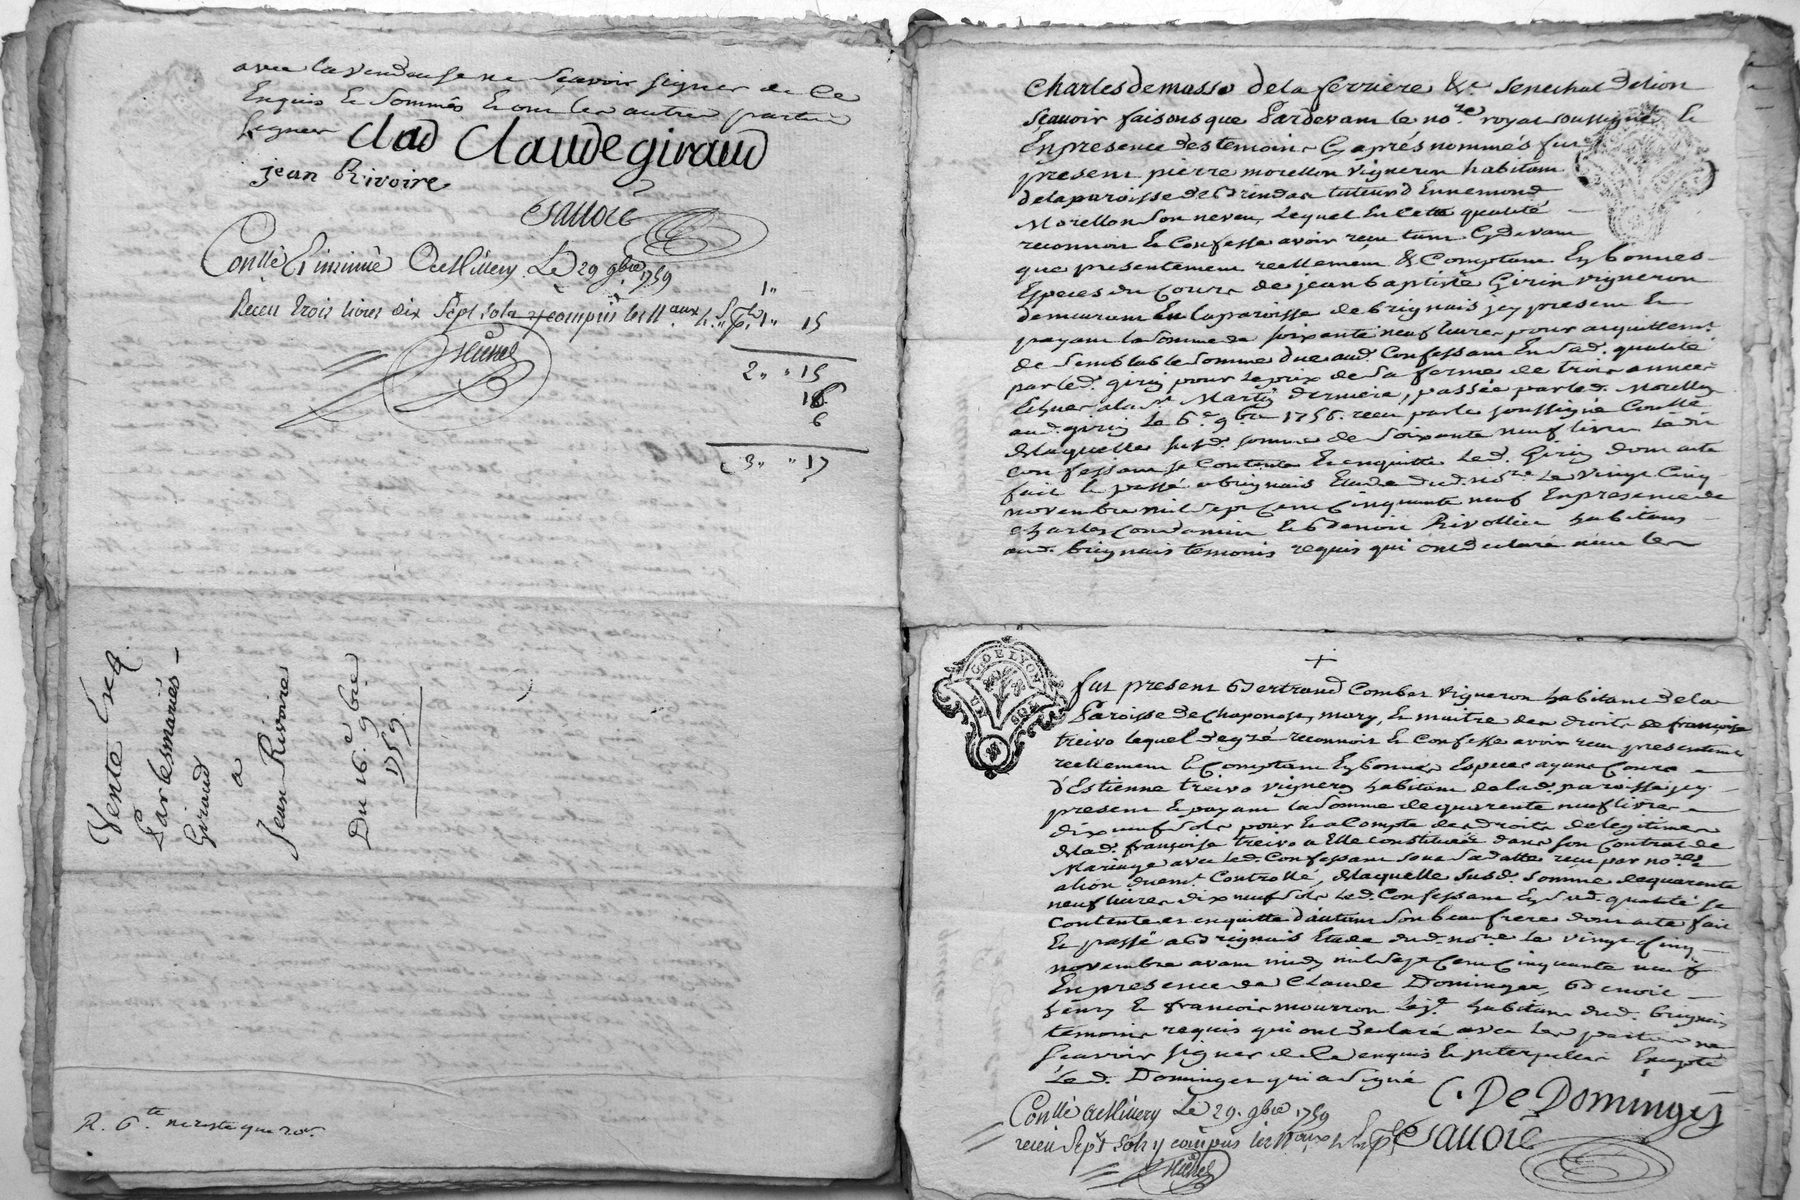 avec la vendeuse ne sçavoir signer de ce
Enquis & sommés & ont les autres parties
signer
clad Claude giraud
jean Rivoire
Savoie
Conllé & insinué a Millery Le 29 gbre 1759
Receu trois livres dix sept sols y compris les ll aux
1 "
1 " 15
2 " " 15
16
6
3 " " 17
Vente
Par les mariés
Giraud
a
Jean Rivoire
Du 16e 9bre
1759
R. 6te ne reste que 20s.
Charles de masso de la ferriere &c senechal de lion
scavoir faisons que Pardevant le nore royal soussigné &
En presence des temoins Cy aprés nommés fut
present pierre morellon vigneron habitant
de la paroisse de Brindas tuteur d'Ennemond
Morellon son neveu, lequel En cette qualité
reconnoit & Confesse avoir receu tant Cydevant
que presentement reellement & Comptant En bonnes
Especes du Cours de jean baptiste Girin vigneron
demeurant En la paroisse de brignais jcy present &
payant la somme de soixante neuf livres pour acquittement
de semblable somme due aud. Confessant En sad. qualité
par led. girin pour le prix de la ferme de trois années
Echues a la st Martin derniere, passée par led. Morellon
aud. girin le 6e 9bre 1756. receu par le soussigné Conllé
de laquelle susd. somme de soixante neuf livres led.
confessant se Contente & en quitte led. Girin dont acte
fait & passé a brignais Etude dud. nore le vingt Cinq
novembre mil sept Cent Cinquante neuf En presence de
Charles Condamin & Benoit Rivollier habitans
aud. brignais temoins requis qui ont declaré avec les
G. DE LYON
+
fut present Bertrand Combet vigneron habitant de la
Paroisse de Chaponost, mary, & maitre des droits de françoise
treivo lequel de gré reconnoit & confesse avoir receu presentement
reellement & Comptant En bonnes Especes ayant Cours
d'Estienne treivo vigneron habitant de lad. paroisse jcy
present & payant la somme de quarente neuf livres
dix neuf sols pour & a Compte des droits de legitime
de lad. françoise treivo a Elle constituée dans son contrat de
Mariage avec led. Confessant sous sa datte receu par nores
a lion duemt Controllé, de laquelle susd. somme de quarente
neuf livres dix neuf sols led. Confessant En sad. qualité se
contente & en quitte d'autant son beaufrere dont acte fait
& passé a Brignais Etude dud. nore le vingt Cinq
novembre avant midy mil sept Cent Cinquante neuf
En presence de Claude Dominget, Benoit
& francois mourron habitans dud. brignais
temoins requis qui ont declaré avec les parties ne
scavoir signer de ce enquis & interpellés Excepté
led. Dominget qui a signé
C. De Domingés
Conllé a Millery Le 29. gbre 1759
receu sept sols y compris les ll aux
Savoie